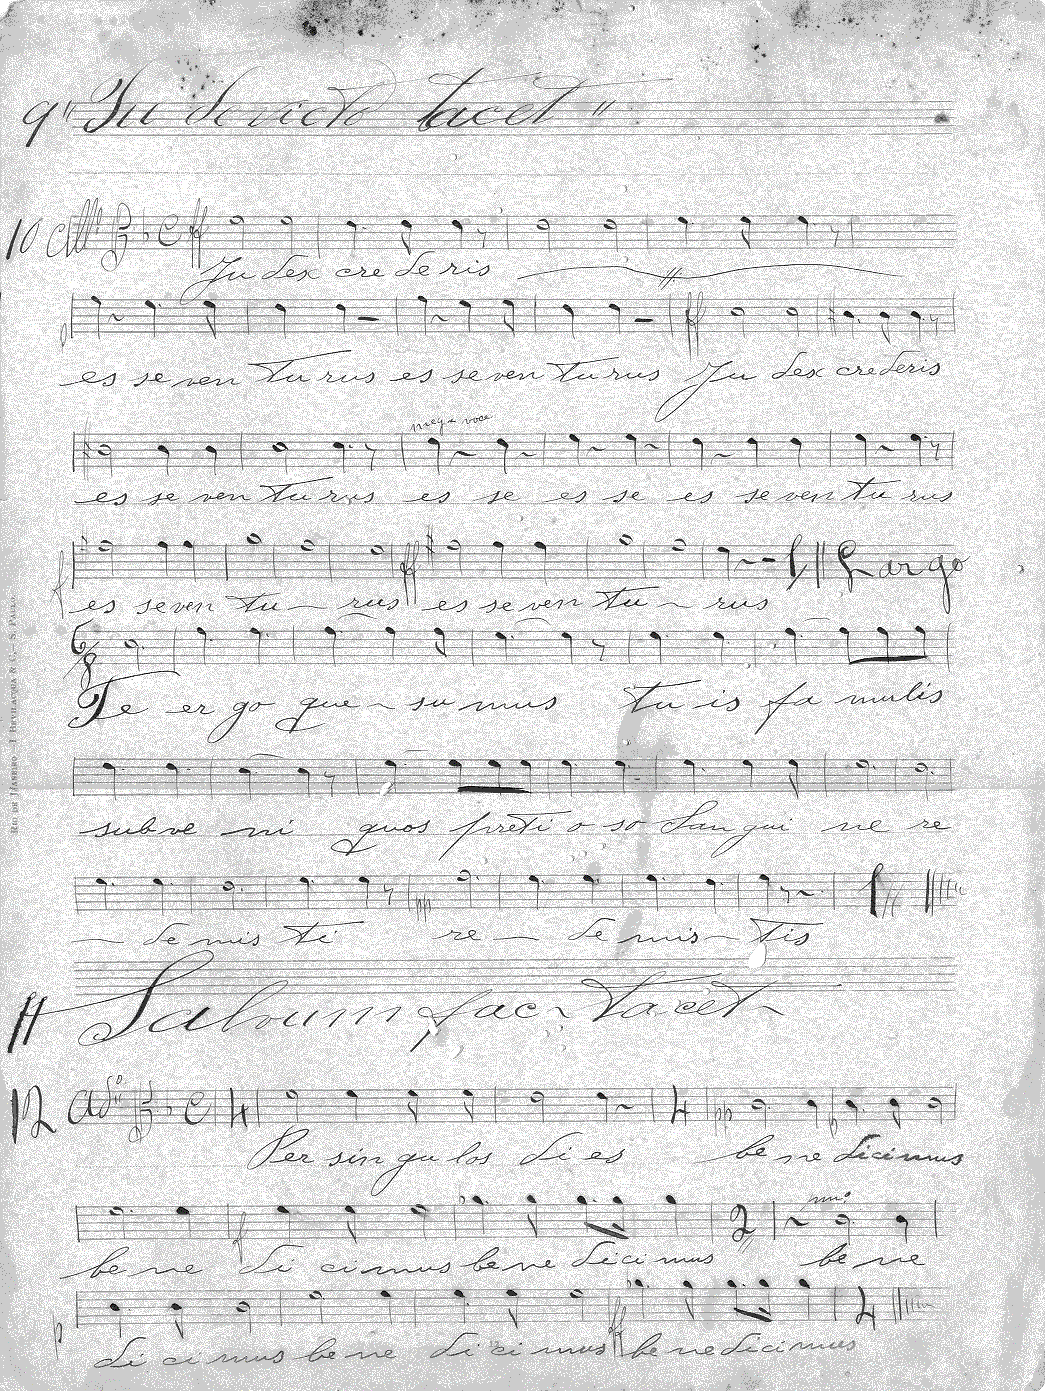 9" Tu devicto tacet "
10 All° C ff
Ju dex cre de ris
p
es se ven tu rus es se ven tu rus Ju dex crederis
ff
mezza voce
es se ven tu rus es se es se es se ven tu rus
f ff Largo
es se ven tu — rus es se ven tu — rus
6/8
Te er go que — su mus tu is fa mulis
sub ve ni quos preti o so San gui ne re
pp
— de mis ti re — de mis — tis
11 Salvum fac tacet
12 Ad° C 4 4 pp p
Per sin gu los di es be ne dicimus
f 2
be ne di ci mus be ne dici mus be ne
p ff 4
di ci mus be ne di ci mus be ne dicimus
Rio de Janeiro - I. Bevilacqua & C. - S. Paulo